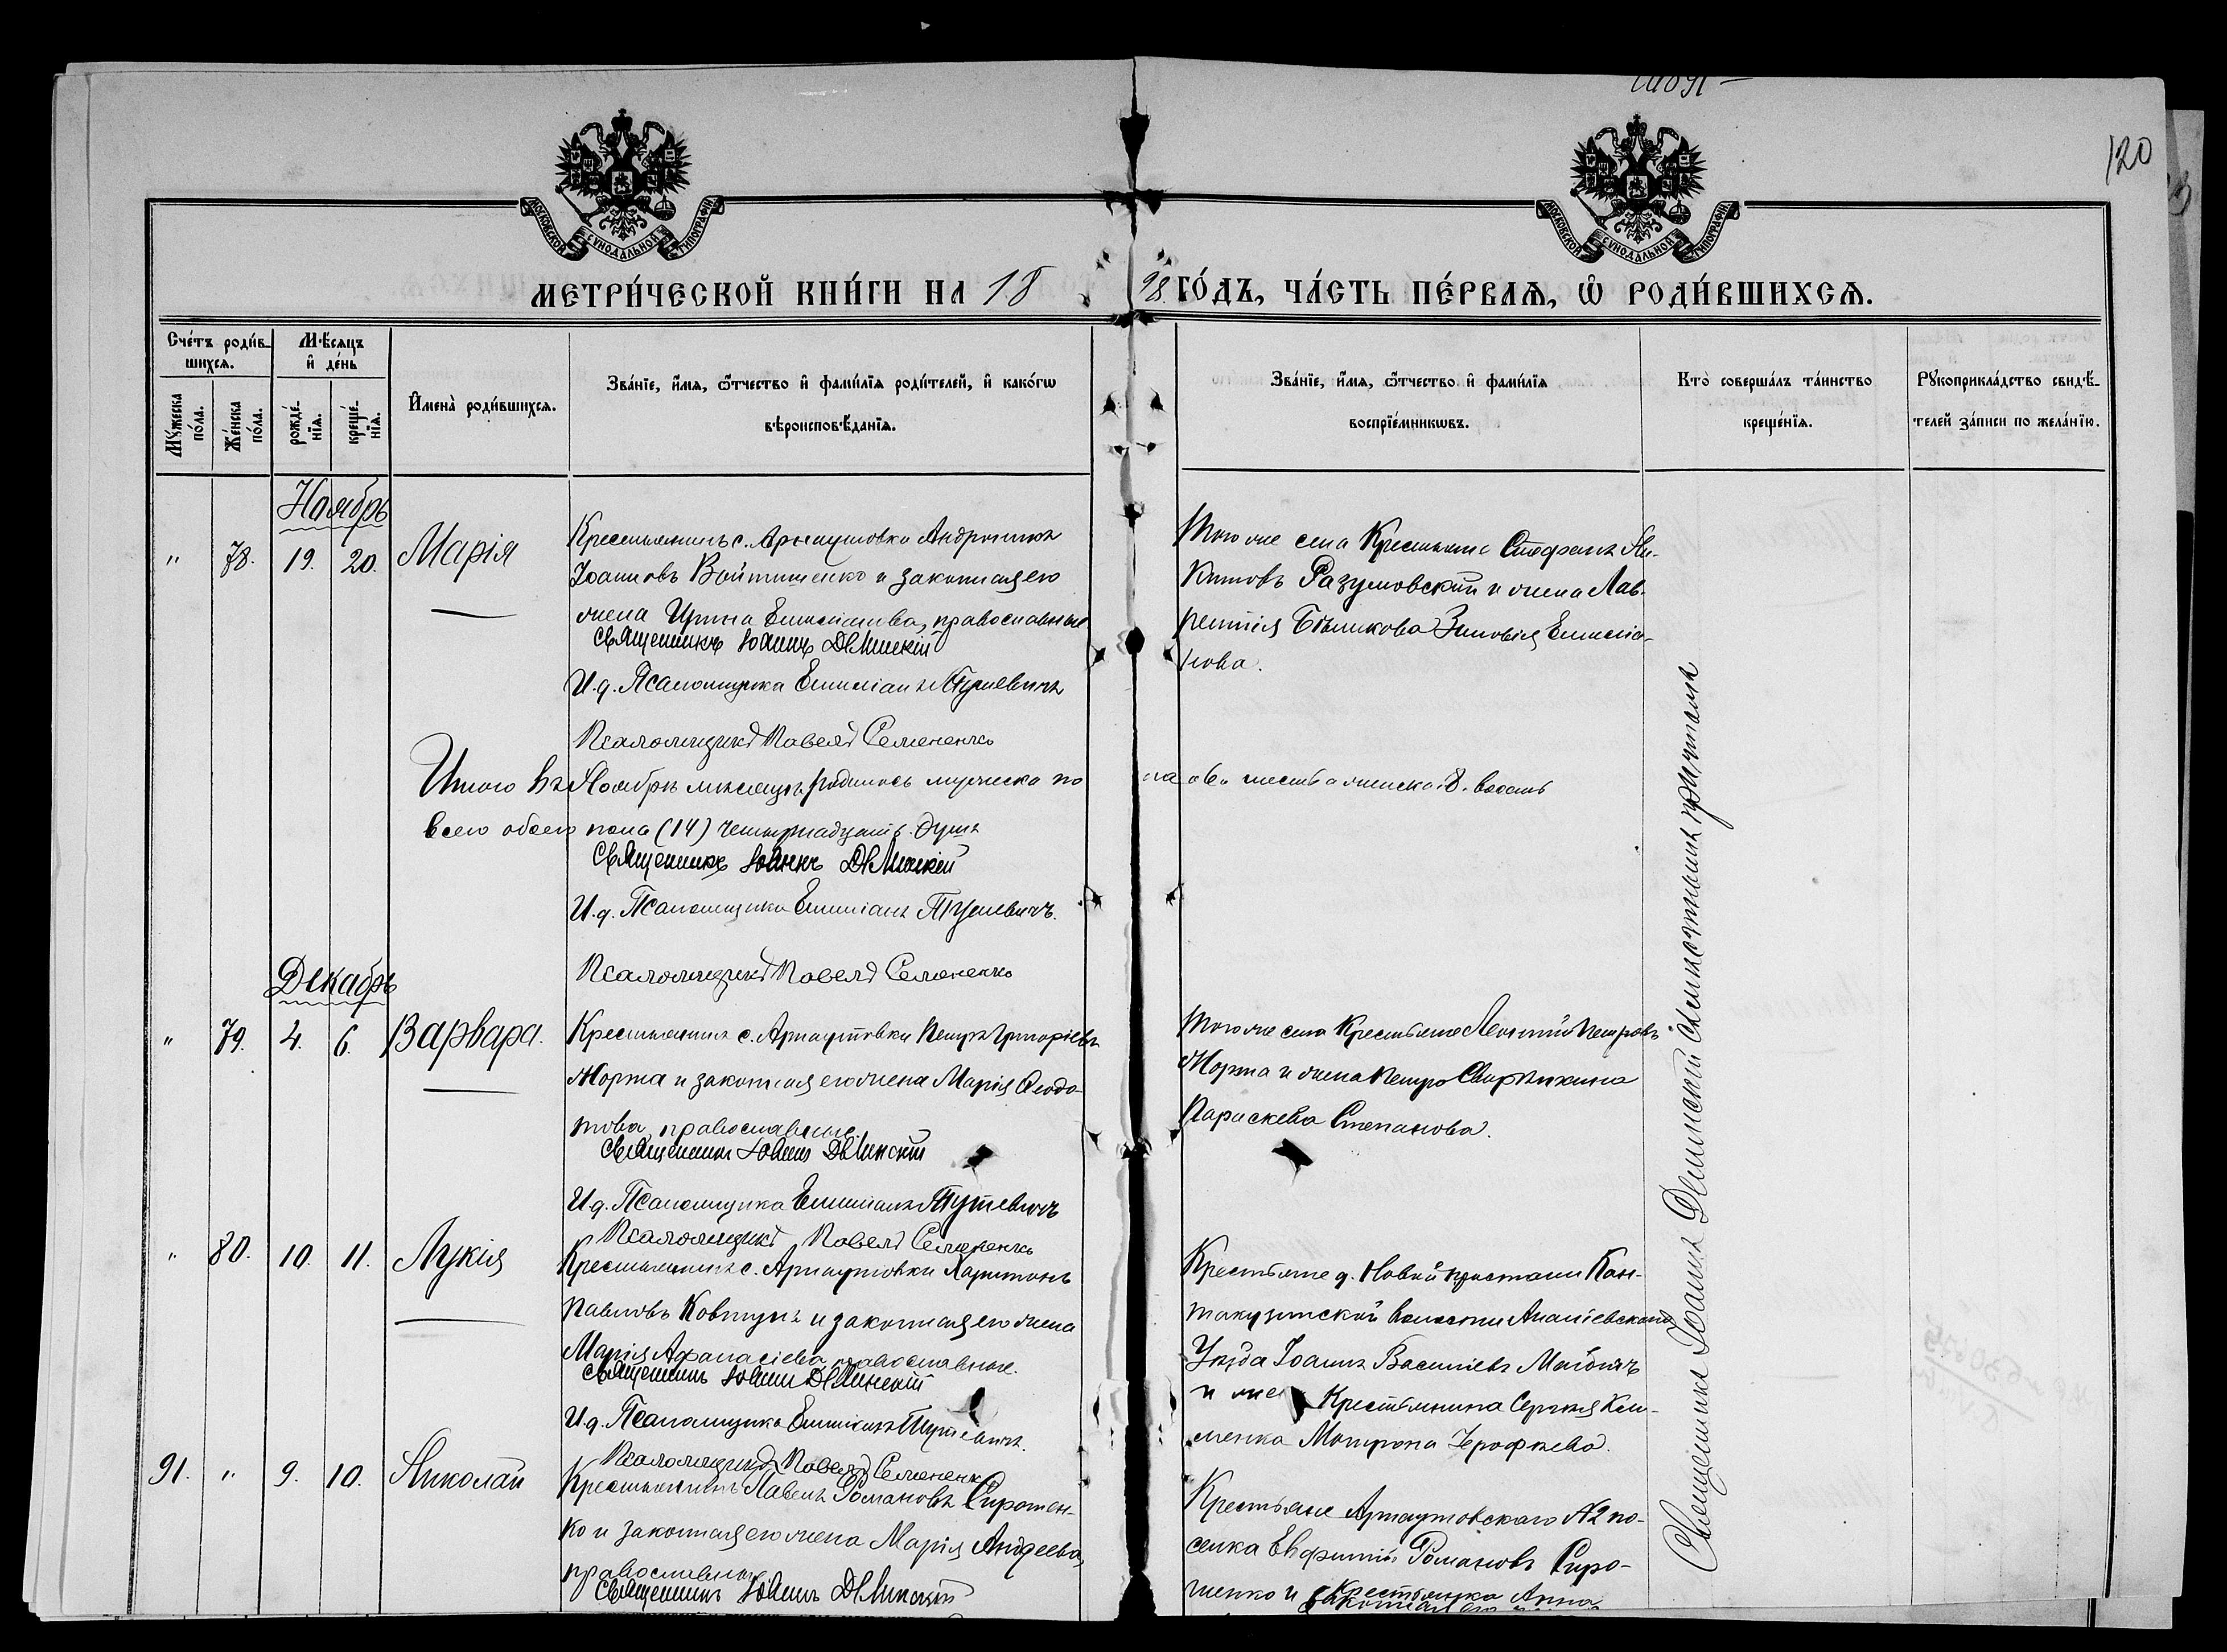 120
МОСКОВСКОЙ СѴНОДАЛЬНОЙ ТИПОГРАФІИ
МОСКОВСКОЙ СѴНОДАЛЬНОЙ ТИПОГРАФІИ
МЕТРИ́ЧЕСКОЙ КНИ́ГИ НА 1898 ГО́ДЪ, ЧА́СТЬ ПЕ́РВАѦ, Ѡ҆ РОДИ́ВШИХСѦ.
Сче́тъ роди́вшихсѧ.
Мꙋ́жеска по́ла.
Же́нска по́ла.
Мѣ́сяцъ и҆ де́нь
рожде́нїѧ.
креще́нїѧ.
И҆мена̀ роди́вшихсѧ.
Зва́нїе, и҆́мѧ, ѻ҆́тчество и҆ фами́лїѧ роди́телей, и҆ како́гѡ
вѣроисповѣ́данїѧ.
Зва́нїе, и҆́мѧ, ѻ҆́тчество и҆ фами́лїѧ
воспрїе́мникѡвъ.
Кто̀ соверша́лъ та́инство
креще́нїѧ.
Рꙋкоприкла́дство свидѣ́-
телей за́писи по жела́нїю.
Ноябрь
" 78. 19. 20. Марія
Крестьянинъ с. Арнаутовки Андроникъ
Іоанновъ Войтишенко и законная его
жена Ирина Емиліанова, православные
Священникъ Іоаннъ Демінскій
И.д. Псаломщика Емиліанъ
Псаломщикъ Павелъ Семененко
Того же села Крестьяне Стефанъ Ни-
китовъ Разумовскій и жена Лав-
рентія Бѣликова Зиновія Емилія-
нова.
Итого въ Ноябрѣ мѣсяцѣ родилось мужеска по
ла 6. шесть а женска 8. восемь
всего обоего пола (14) четырнадцать душъ
Священникъ Іоаннъ Демінскій
И.д. Псаломщика Емиліанъ
Псаломщикъ Павелъ Семененко
Декабрь
" 79. 4. 6. Варвара.
Крестьянинъ с. Арнаутовки Петръ Григоріевъ
Моржа и законная его жена Марія Ѳеодо-
това, православные.
Священникъ Іоаннъ Демінскій
И.д. Псаломщика Емиліанъ
Псаломщикъ Павелъ Семененко
Того же села Крестьяне Леонтій Петровъ
Моржа и жена Петра
Параскева Степанова.
" 80. 10. 11. Лукія
Крестьянинъ с. Арнаутовки Харитонъ
Павловъ Ковтунъ и законная его жена
Марія Афанасіева, православные.
Священникъ Іоаннъ Демінскій
И.д. Псаломщика Емиліанъ
Псаломщикъ Павелъ Семененко
Крестьяне д. Новой пристани Кан-
такузинской волости Ананіевскаго
Уѣзда Іоаннъ Василіевъ
и Крестьянина Сергія Кли-
менка Матрона Ерофѣева.
91. " 9. 10. Николай
Крестьянинъ Павелъ Романовъ Сиротен-
ко и законная его жена Марія Андреева,
православные
Священникъ Іоаннъ Демінскій
Крестьяне Арнаутовскаго №2 по-
селка Евфимій Романовъ Сиро-
тенко и крестьянка Анна
Священникъ Іоаннъ Демінскій